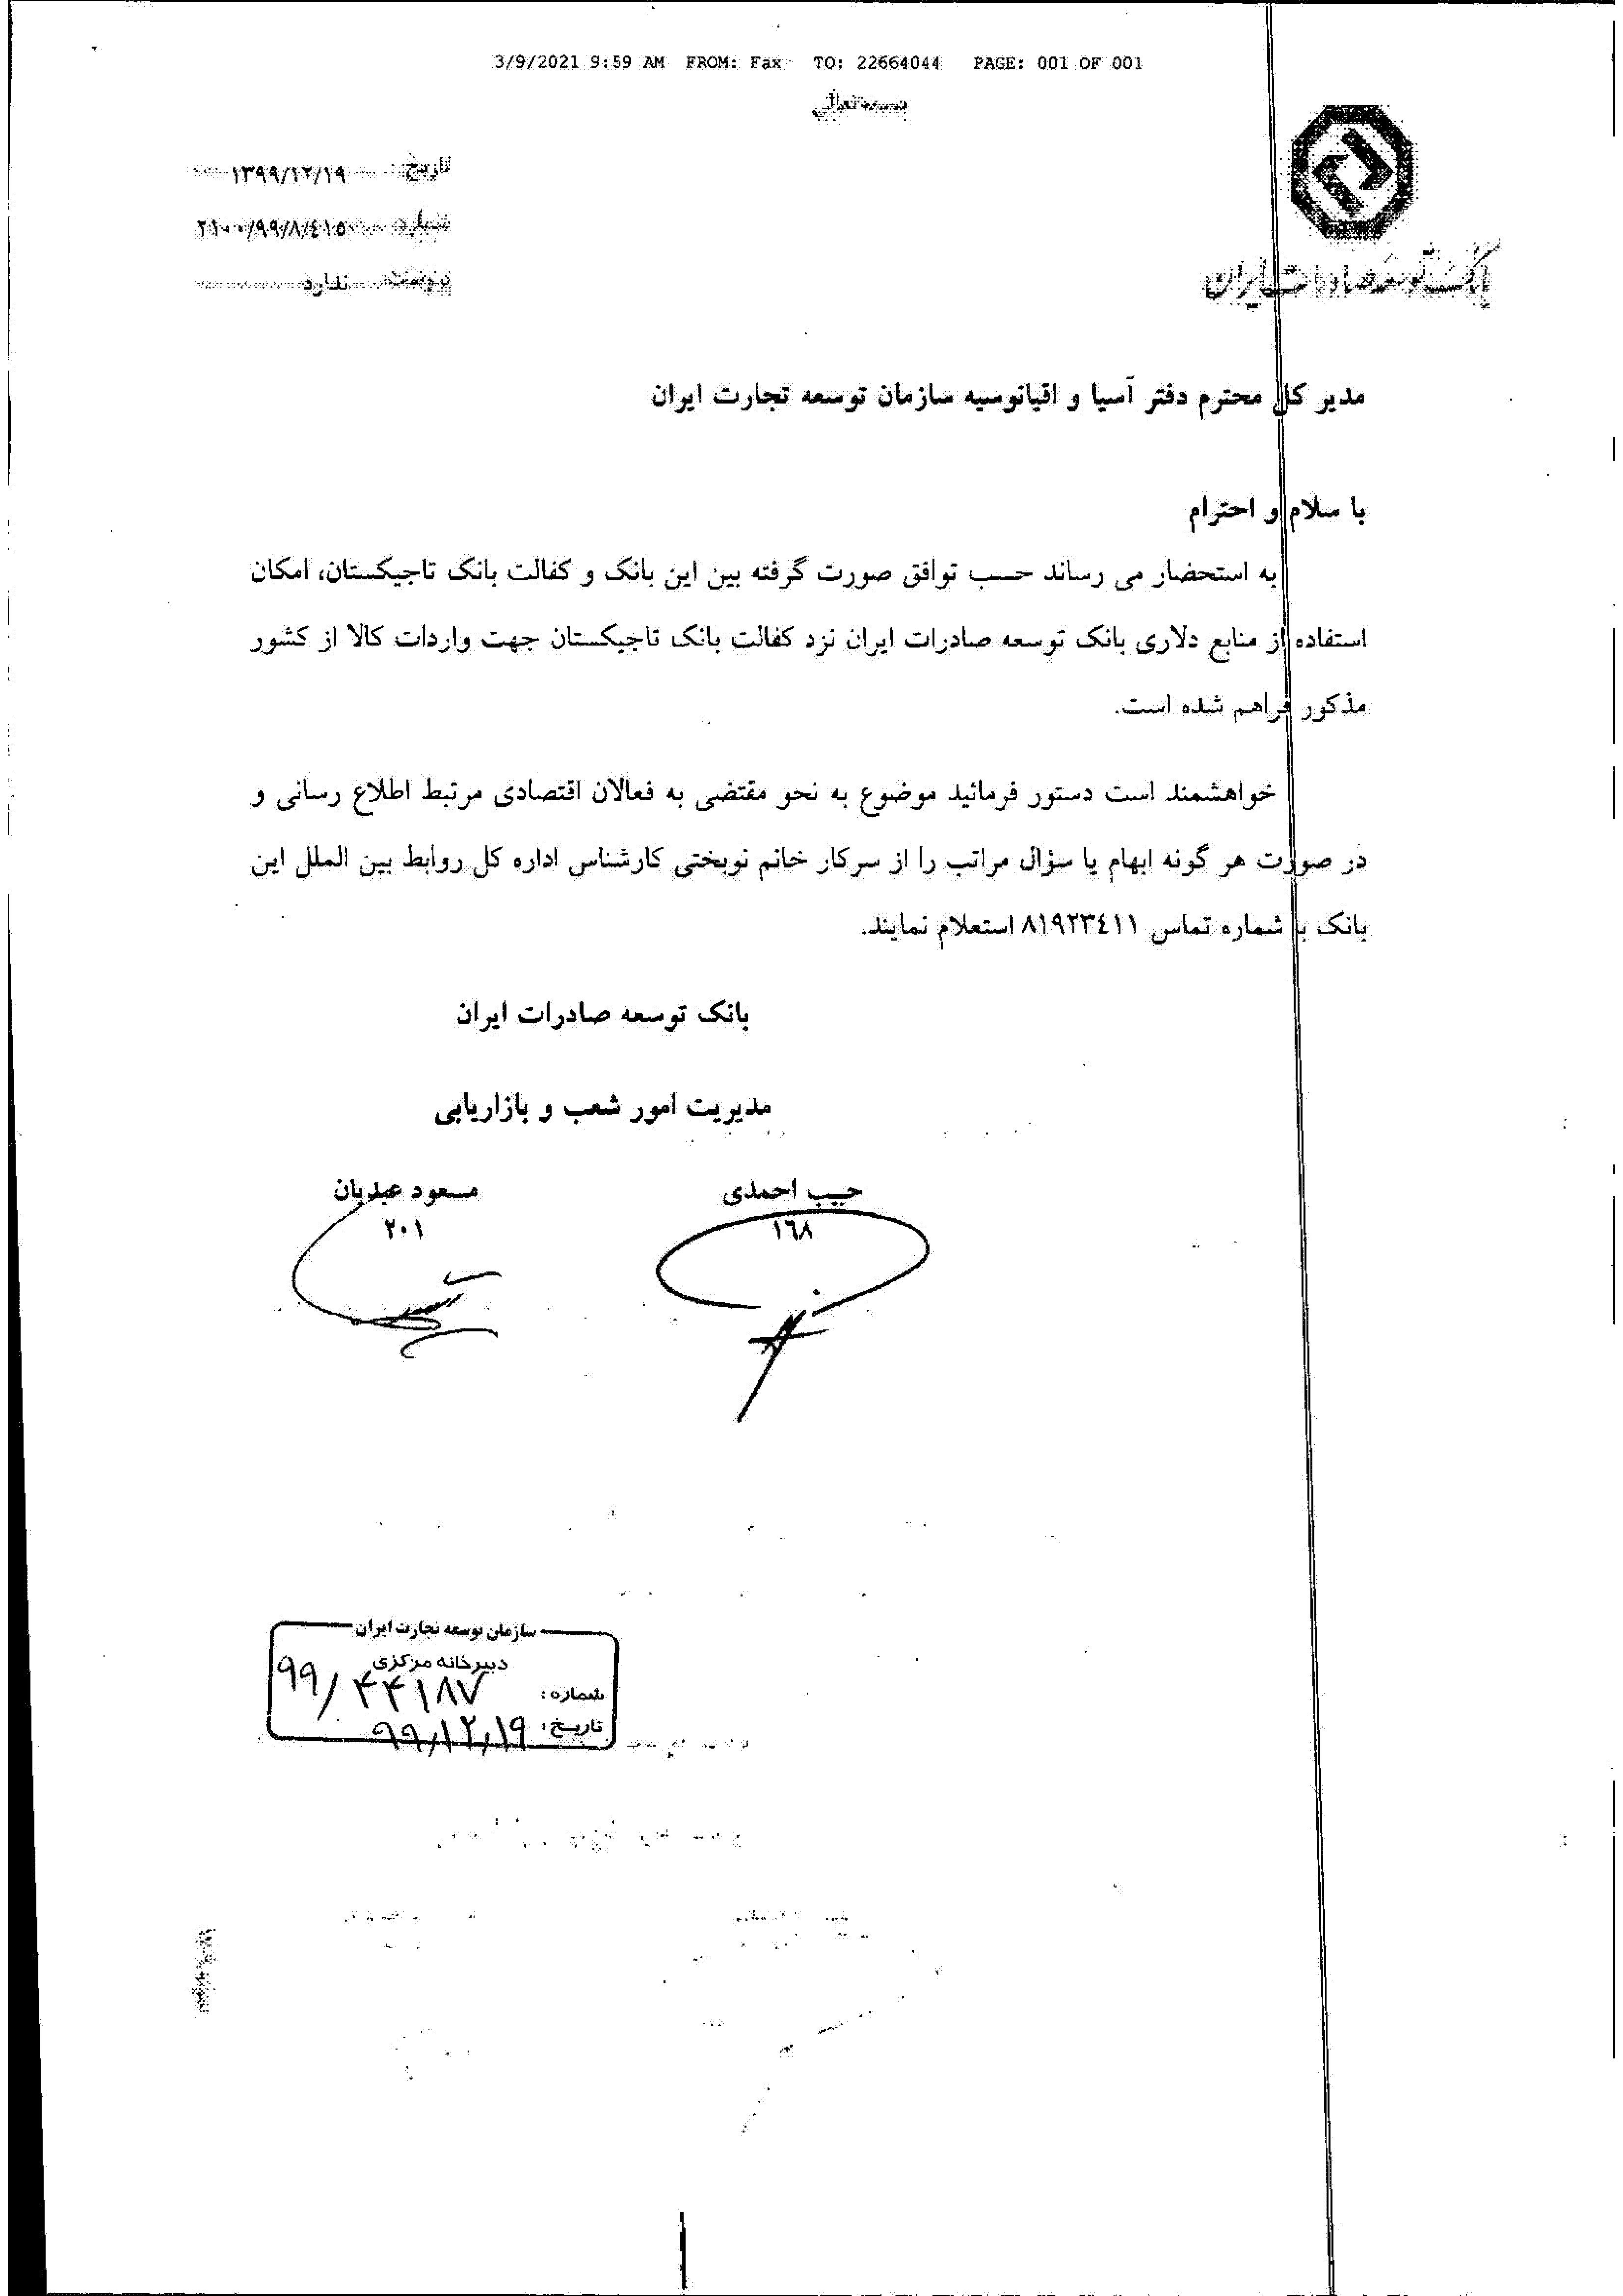 3/9/2021 9:59 AM FROM: Fax TO: 22664044 PAGE: 001 OF 001
بسمه‌تعالی
بانک توسعه صادرات ایران
تاریخ: ۱۳۹۹/۱۲/۱۹
شماره: ۲۱۰۰/۹۹/۸/٤۱۵
پیوست: ندارد
مدیر کل محترم دفتر آسیا و اقیانوسیه سازمان توسعه تجارت ایران
با سلام و احترام
به استحضار می رساند حسب توافق صورت گرفته بین این بانک و کفالت بانک تاجیکستان، امکان
استفاده از منابع دلاری بانک توسعه صادرات ایران نزد کفالت بانک تاجیکستان جهت واردات کالا از کشور
مذکور فراهم شده است.
خواهشمند است دستور فرمائید موضوع به نحو مقتضی به فعالان اقتصادی مرتبط اطلاع رسانی و
در صورت هر گونه ابهام یا سؤال مراتب را از سرکار خانم نوبختی کارشناس اداره کل روابط بین الملل این
بانک با شماره تماس ۸۱۹۲۳٤۱۱ استعلام نمایند.
بانک توسعه صادرات ایران
مدیریت امور شعب و بازاریابی
حبیب احمدی
۱٦۸
مسعود عبدیان
۲۰۱
سازمان توسعه تجارت ایران
دبیرخانه مرکزی
شماره: ۹۹/۴۴۱۸۷
تاریخ: ۹۹/۱۲/۱۹